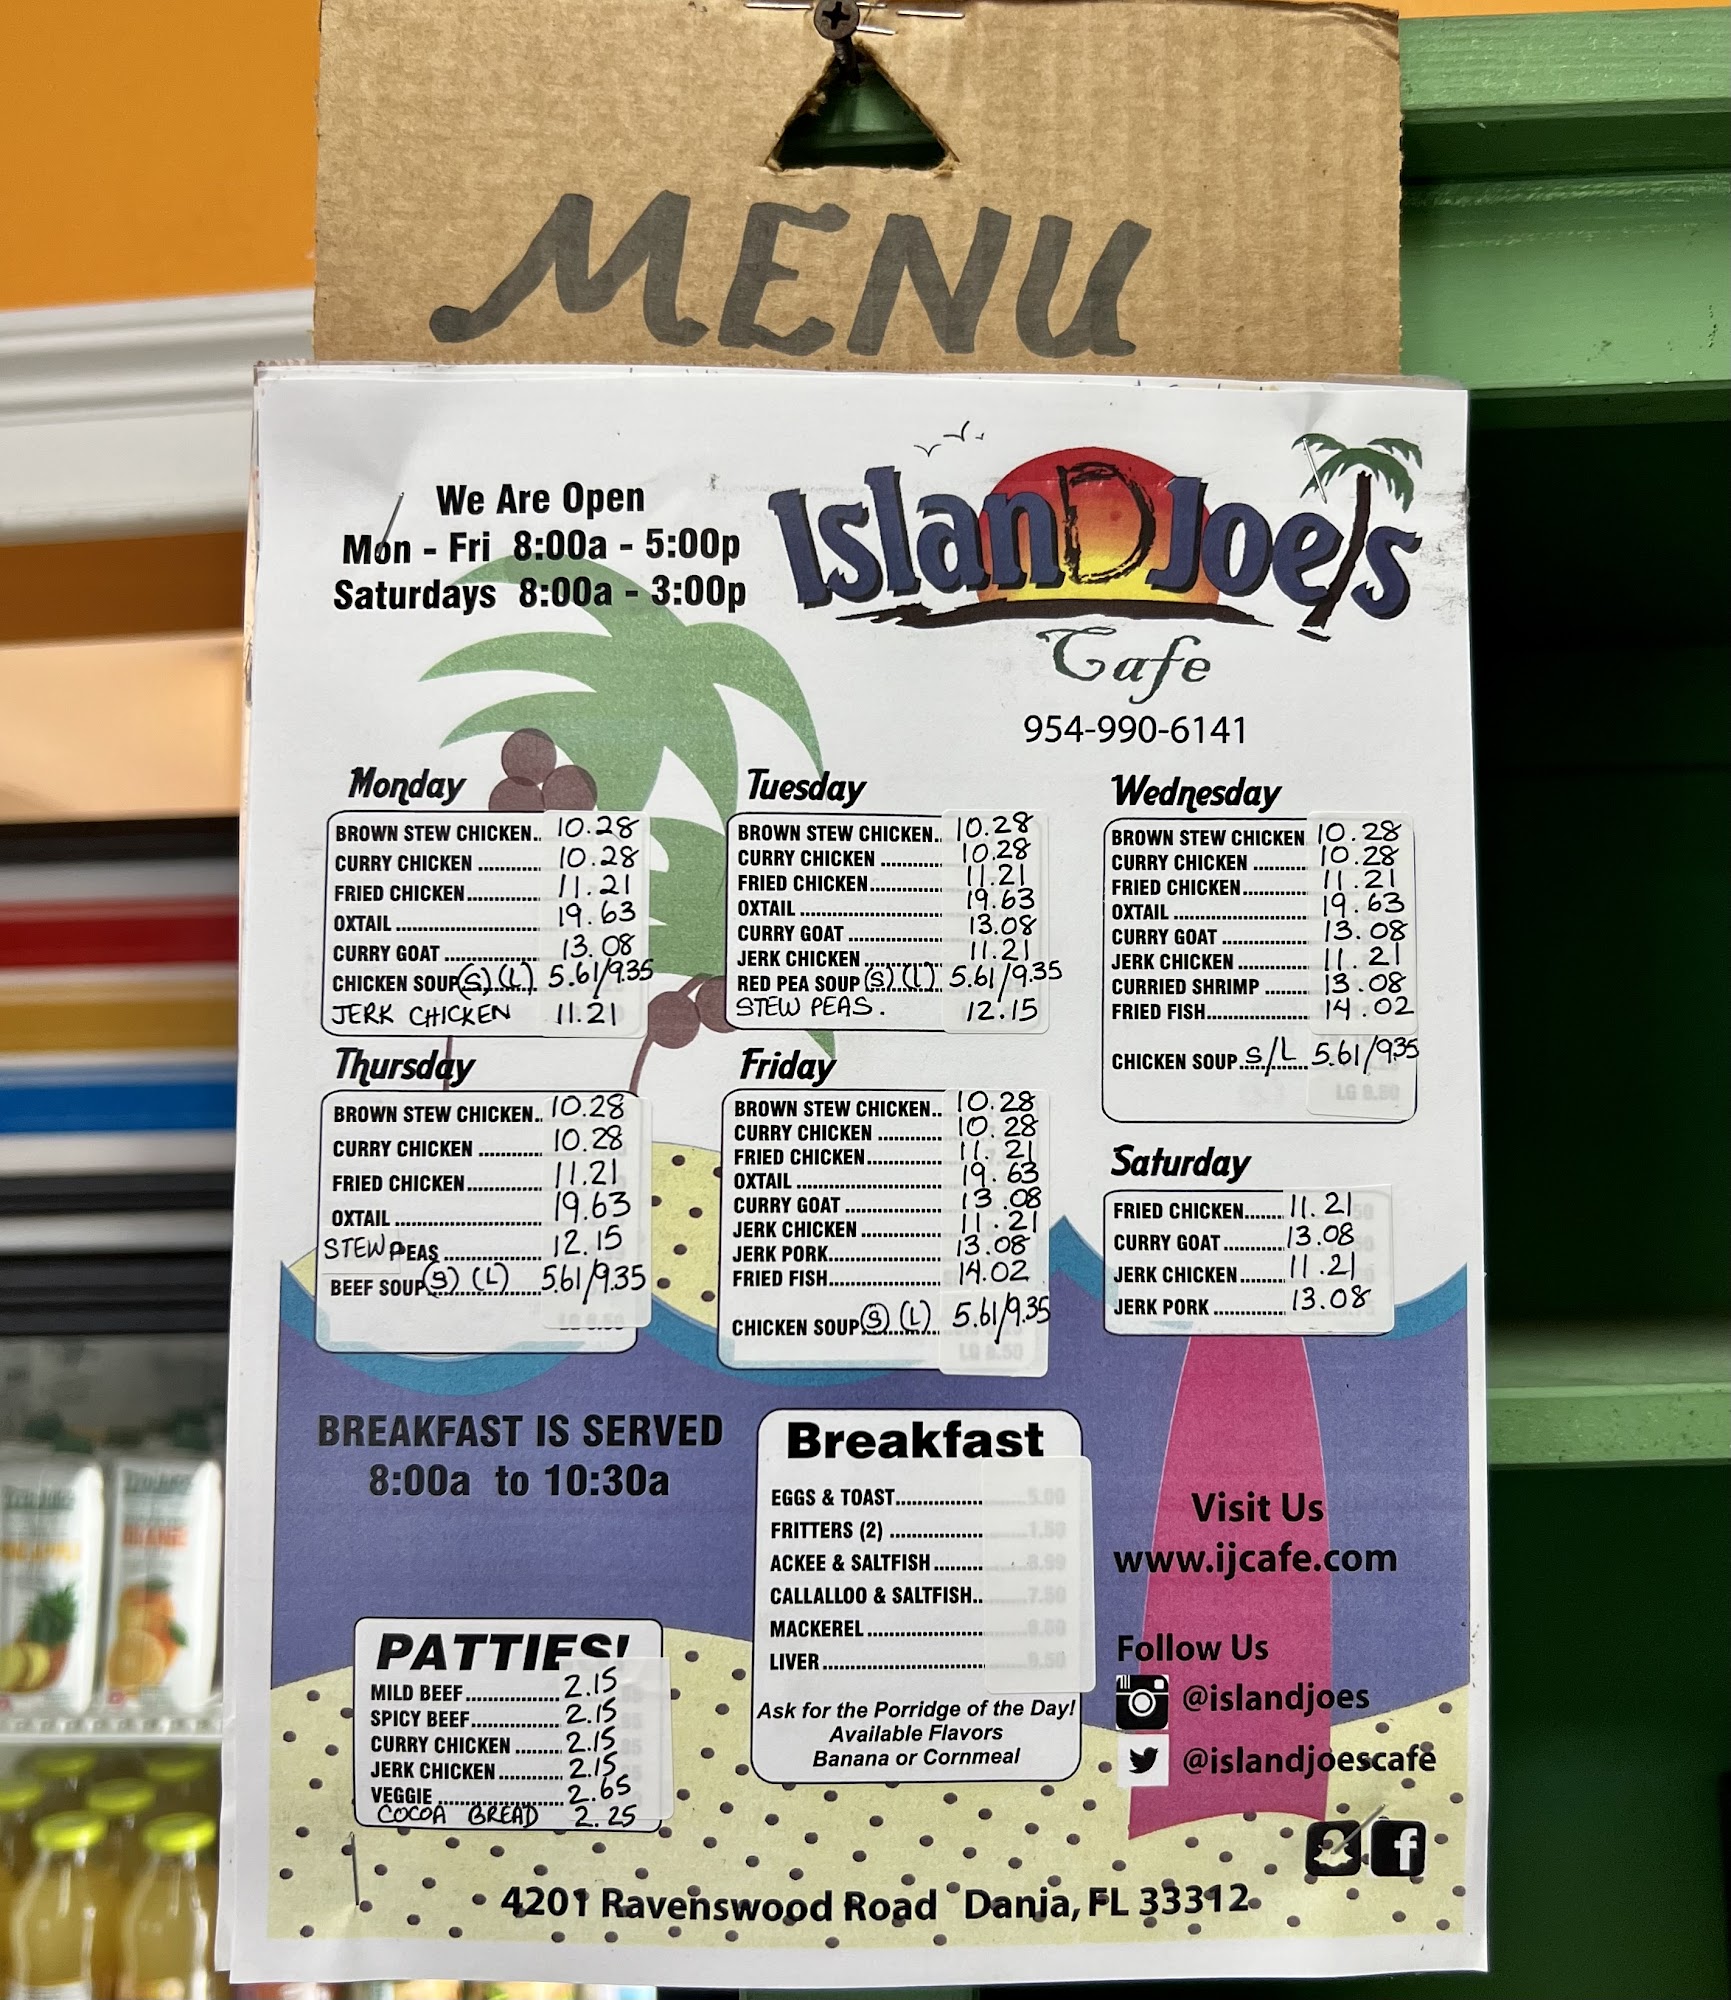 MENU
We Are Open
Mon - Fri 8:00a - 5:00p
Saturdays 8:00a - 3:00p
Island Joe's
Cafe
954-990-6141
Monday
BROWN STEW CHICKEN.. 10.28
CURRY CHICKEN ............ 10.28
FRIED CHICKEN.............. 11.21
OXTAIL ........................... 19.63
CURRY GOAT ................. 13.08
CHICKEN SOUP (S) (L) 5.61/9.35
JERK CHICKEN 11.21
Tuesday
BROWN STEW CHICKEN.. 10.28
CURRY CHICKEN ............ 10.28
FRIED CHICKEN.............. 11.21
OXTAIL ........................... 19.63
CURRY GOAT ................. 13.08
JERK CHICKEN ............... 11.21
RED PEA SOUP (S) (L) 5.61/9.35
STEW PEAS. 12.15
Wednesday
BROWN STEW CHICKEN 10.28
CURRY CHICKEN ........... 10.28
FRIED CHICKEN.............. 11.21
OXTAIL ........................... 19.63
CURRY GOAT ................. 13.08
JERK CHICKEN .............. 11.21
CURRIED SHRIMP ........ 13.08
FRIED FISH..................... 14.02
CHICKEN SOUP S/L 5.61/9.35
LG 8.50
Thursday
BROWN STEW CHICKEN.. 10.28
CURRY CHICKEN ............ 10.28
FRIED CHICKEN.............. 11.21
OXTAIL ........................... 19.63
STEW PEAS ................... 12.15
BEEF SOUP (S) (L) 5.61/9.35
LG 8.50
Friday
BROWN STEW CHICKEN.. 10.28
CURRY CHICKEN ............ 10.28
FRIED CHICKEN.............. 11.21
OXTAIL ........................... 19.63
CURRY GOAT ................. 13.08
JERK CHICKEN ............... 11.21
JERK PORK..................... 13.08
FRIED FISH..................... 14.02
CHICKEN SOUP (S) (L) 5.61/9.35
LG 8.50
Saturday
FRIED CHICKEN....... 11.21
CURRY GOAT ........... 13.08
JERK CHICKEN......... 11.21
JERK PORK .............. 13.08
BREAKFAST IS SERVED
8:00a to 10:30a
Breakfast
EGGS & TOAST................ 5.00
FRITTERS (2) .................. 1.50
ACKEE & SALTFISH.........
CALLALLOO & SALTFISH.. 7.50
MACKEREL .....................
LIVER............................. 9.50
Ask for the Porridge of the Day!
Available Flavors
Banana or Cornmeal
PATTIES!
MILD BEEF................. 2.15
SPICY BEEF................ 2.15
CURRY CHICKEN ......... 2.15
JERK CHICKEN............ 2.15
VEGGIE ....................... 2.65
COCOA BREAD 2.25
Visit Us
www.ijcafe.com
Follow Us
@islandjoes
@islandjoescafe
4201 Ravenswood Road Dania, FL 33312